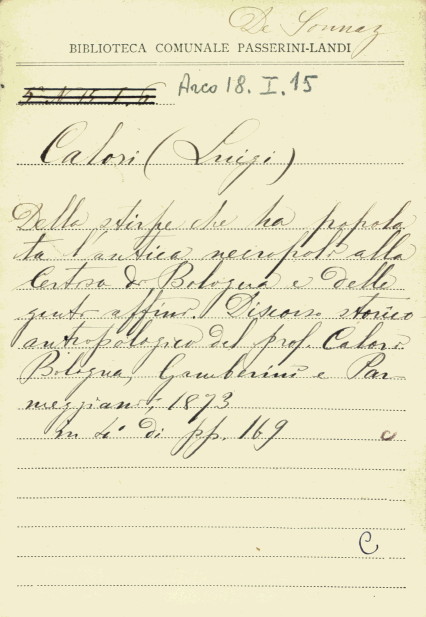 De Sonnaz
BIBLIOTECA COMUNALE PASSERINI-LANDI
Arco 18. I. 15
Calori (Luigi)
Della stirpe che ha popola
ta l'antica necropoli alla
Certosa di Bologna e delle
genti affini. Discorso storico
antropologico del prof. Calori
Bologna, Gamberini e Par-
meggiani, 1873
in 4° di pp. 169
C